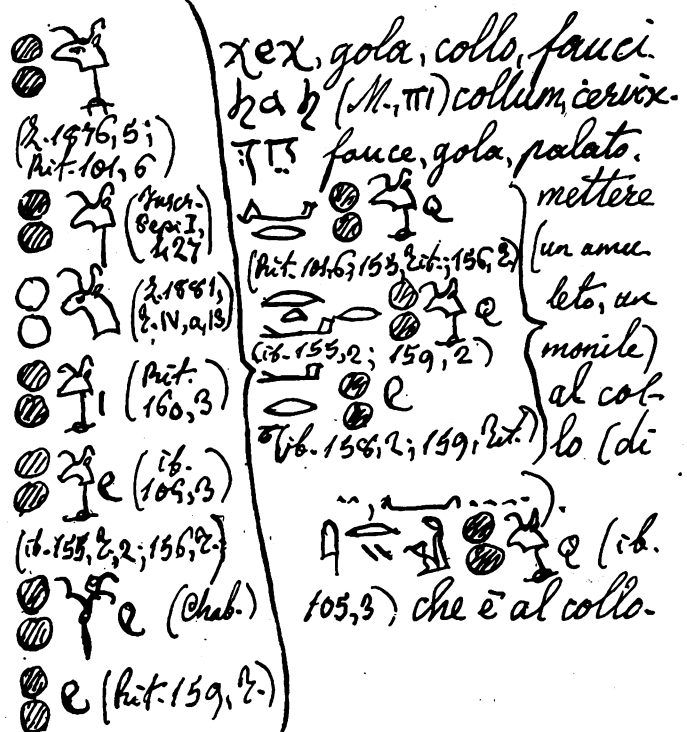 𓐍𓐍
(Z. 1876, 5;
Rit. 101, 6)
𓐍𓐍 (Inscr.
Sepi I,
427
(Z. 1881,
𓐍𓐍 (Rit.
160,3)
𓐍𓐍 𓏲 (ib.
105,3)
(ib. 155, T., 2; 156, T.)
𓐍𓐍 𓏲 (Chab.)
𓐍𓐍 𓏲 (Rit. 159, T.)
χeχ, gola, collo, fauci.
ϧⲁϧ (M., ⲡⲓ) collum, cervix.
חך fauce, gola, palato.
𓂞𓂋 𓐍𓐍 𓏲
(Rit. 101,6; 155, Tit.; 156, T.)
𓐍𓐍 𓏲
(ib. 155, 2; 159, 2)
𓂋 𓐍𓐍 𓏲
(ib. 158, 2; 159, Tit.)
mettere
(un amu
leto, un
monile)
al col-
lo (di
...).
𓐍𓐍 𓏲 (ib.
105,3) che è al collo.